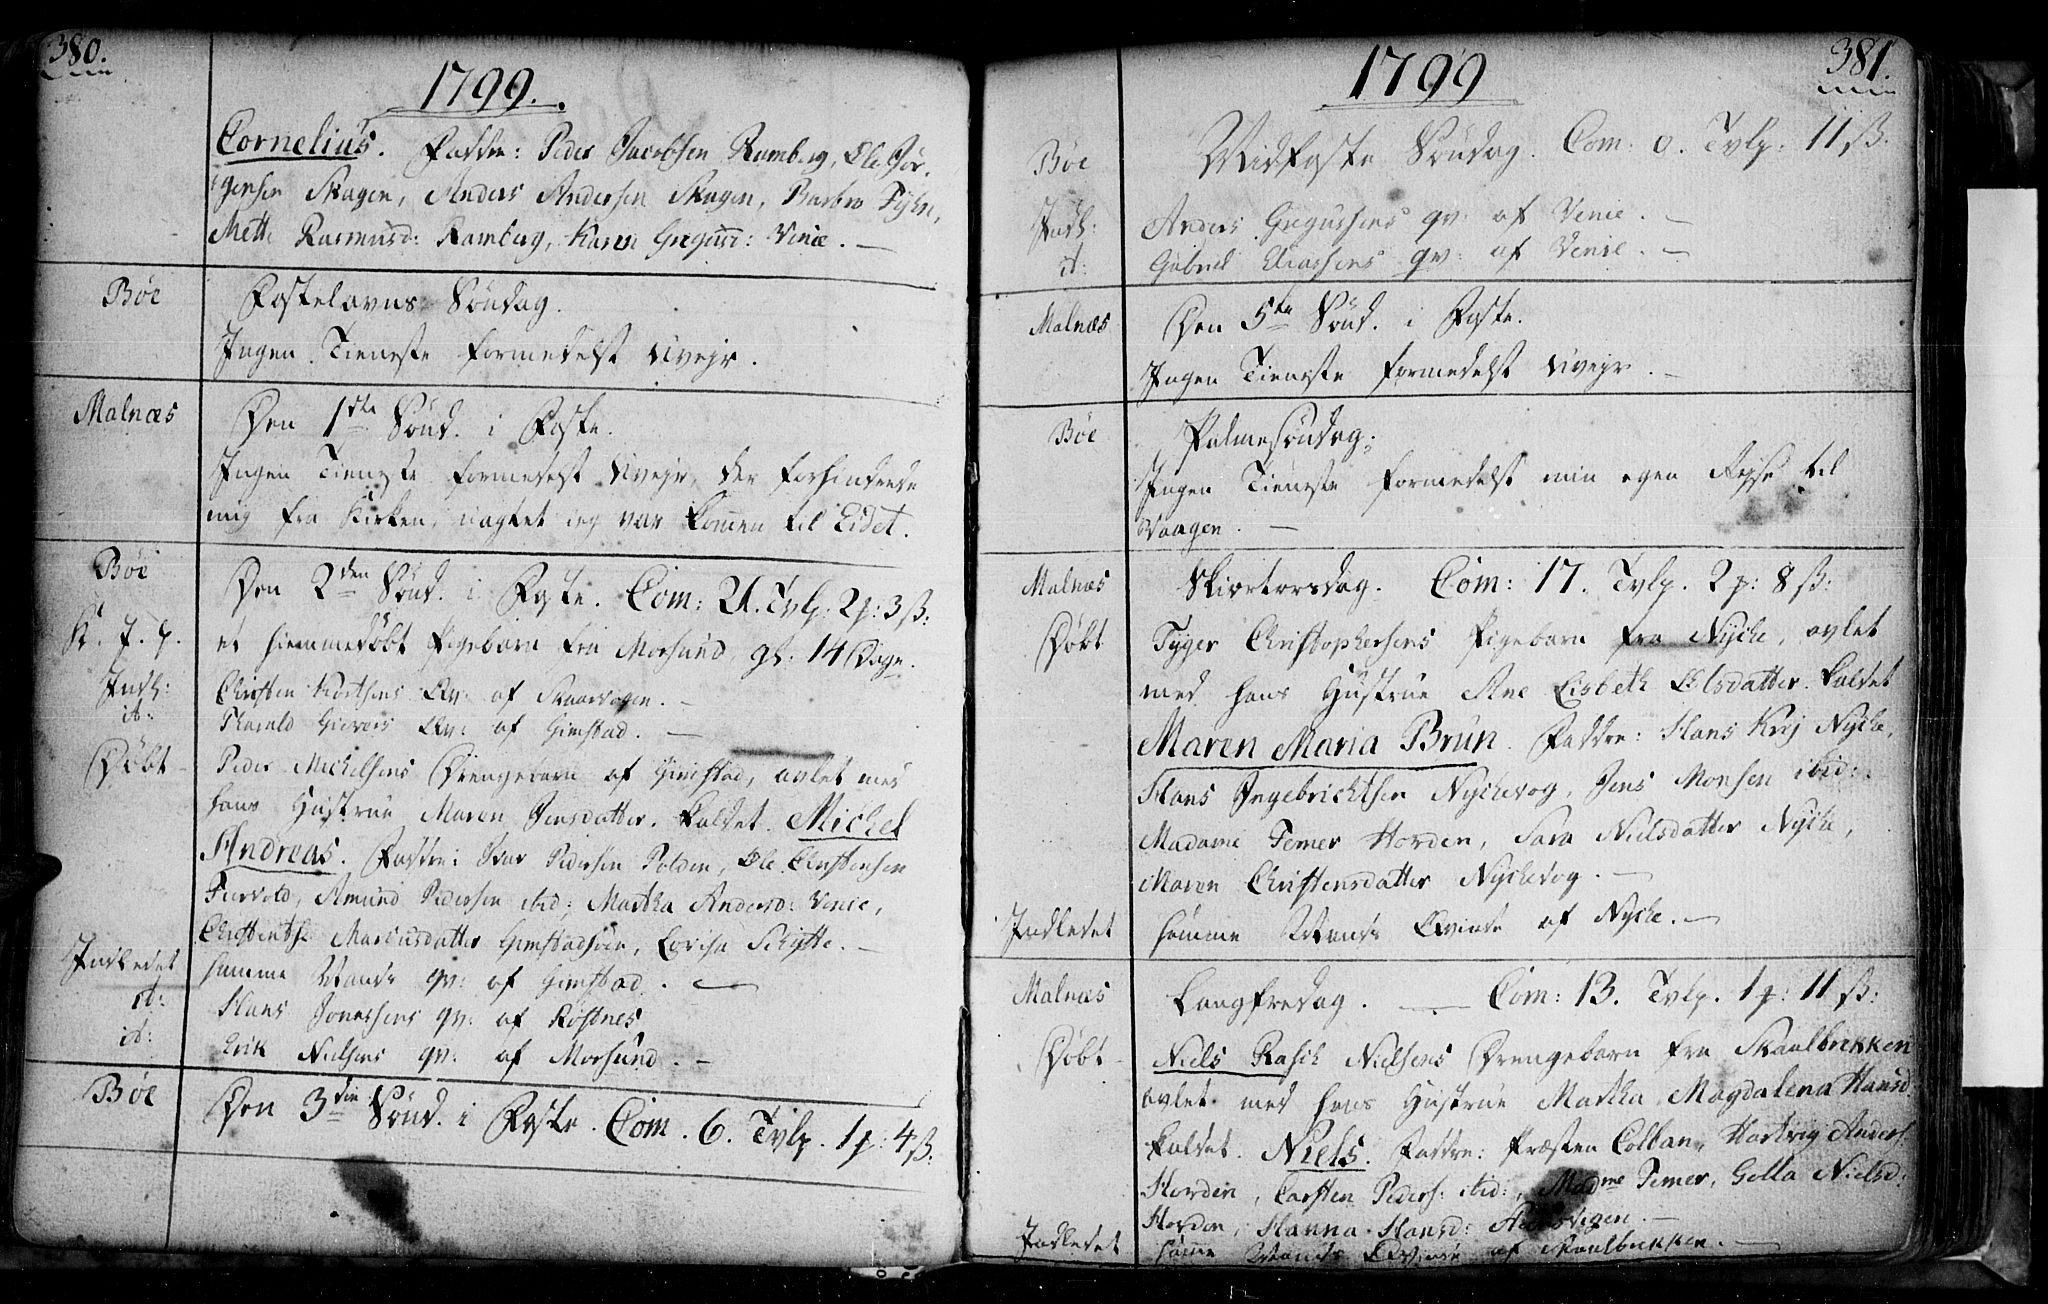 380.
1799.
Cornelius. Faddre: Peder Jacobsen Ramberg, Ole Jør-
gensen Skagen, Anders Andersen Skagen, Barbro
Mette Rasmusd: Ramberg, Karen Greguss: Vinie.
Bøe Fastelavns Søndag.
Ingen Tieneste formedelst Uvejr.
Malnæs Den 1ste Sønd. i Faste.
Ingen Tieneste formedelst Uvejr, der forhindrede
mig fra Kirken, uagtet ieg var kom̄en til Eidet.
Bøe Den 2den Sønd. i Faste. Com: 21. Tvlp. 2p: 3ß:
et hiemmedøbt Pigebarn fra Morsund, gl: 14 Dage.
Indl: Christen Qv: af Skaarvogen.
it: Qv: af Gimstad.
Døbt Peder Michelsens Drengebarn af Gimstad, avlet med
hans Hustrue Maren Jensdatter. kaldet Michel
Andreas. Faddre: Ivar Pedersen Polden, Ole Christensen
Amund Pedersen ibid; Martha Andersd: Vinie,
Marcusdatter Lovisa Schytte.
Indledet samme Mands qv: af Gimstad.
it: Hans Jonassens qv: af Røstnes
it: Erik Nielsens qv: af Morsund.
Bøe Den 3die Sønd. i Faste. Com. 6. Tvlp. 1p: 4ß:
381.
1799
Bøe Midfaste Søndag. Com: 0. Tvlp: 11ß.
Indl: Anders Gregussens qv: af Venie.
it: Gabriel Eliassens qv: af Venie.
Malnæs Den 5te Sønd. i Faste.
Ingen Tieneste formedelst Uvejr.
Bøe Palmesøndag:
Ingen Tieneste formedelst min egen Rejse til
Vaagen.
Malnæs Skiærtorsdag. Com: 17. Tvlp. 2p: 8ß:
Døbt Tyger Christophersens Pigebarn fra Nyche, avlet
med hans Hustrue Ane Lisbeth Olsdatter. kaldet
Maren Maria Brun. Faddre: Hans Krej Nyche,
Hans Ingebrichtsen Nychevog, Jens Monsen ibid:
Madame Temer Horden, Sara Nielsdatter Nyche,
Maren Christensdatter Nychevog.
Indledet sam̄e Mands Qvinde af Nyche.
Malnæs Langfredag. Com: 13. Tvlp. 1p: 11ß:
Døbt Niels Rasch Nielsens Drengebarn fra Skaulbrekken
avlet med hans Hustrue Martha Magdalena Hansd
kaldet Niels. Faddre: Præsten Colban, Hartvig Anders:
Horden, Carsten Peders: ibid:, Madme Temer, Golla Nielsd:
Horden, Hanna Hansd:
Indledet sam̄e Mands Qvinde af Skaulbrekken.